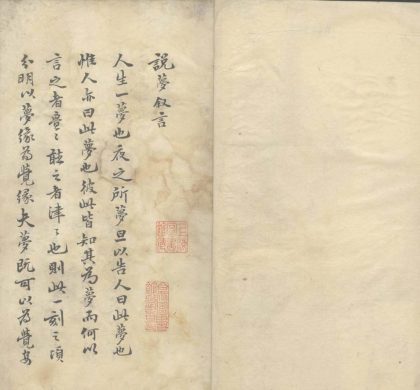 說夢叙言
人生一夢也夜之所夢旦以告人曰此夢也
惟人亦曰此夢也彼此皆知其為夢而何以
言之者亹〻聽之者津〻也則此一刻之頃
分明以夢緣為覺緣夫夢既可以為覺安